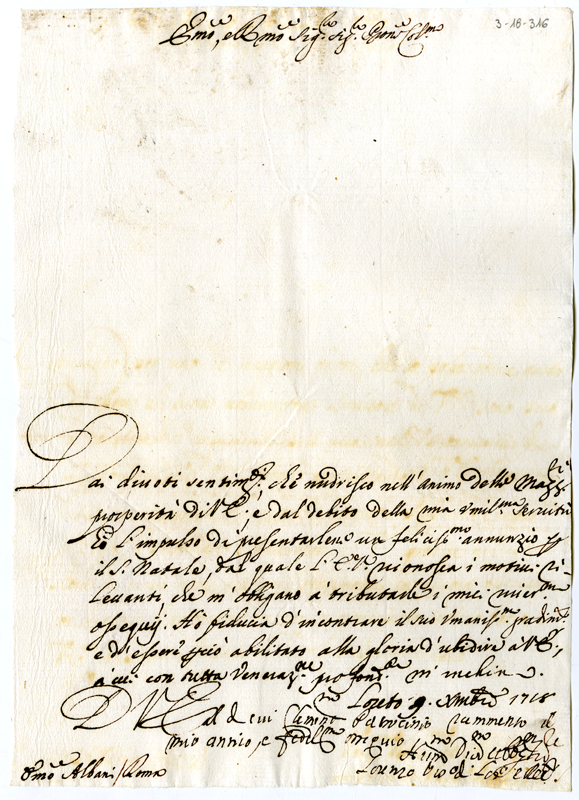 3-18-316
Em̃o, e Rm̃o Sig.r Sig.r Pron̄e Col.mo
Dai divoti sentim.ti, che nudrisco nell'Animo delle mag.ri
prosperità di V.E. e dal debito della mia umil.ma servitù
hò l'impulso di presentarlene un feliciss.mo annunzio p
il S. Natale, dal quale l'E.V. riconosca i motivi ri-
levanti, che m'obligano à tributarle i miei
ossequij. Hò fiducia d'incontrare il suo umaniss.mo gradim.to
e d'essere abilitato alla gloria d'ubidire a V.E.,
à cui con tutta veneraz.ne profond.te m'inchino.
D V E Loreto 9. Xmbre 1718
al di cui Patrocinio rammento il
mio antico, e fedel.mo ossequio
Lorenzo
Em̃o Albani / Roma